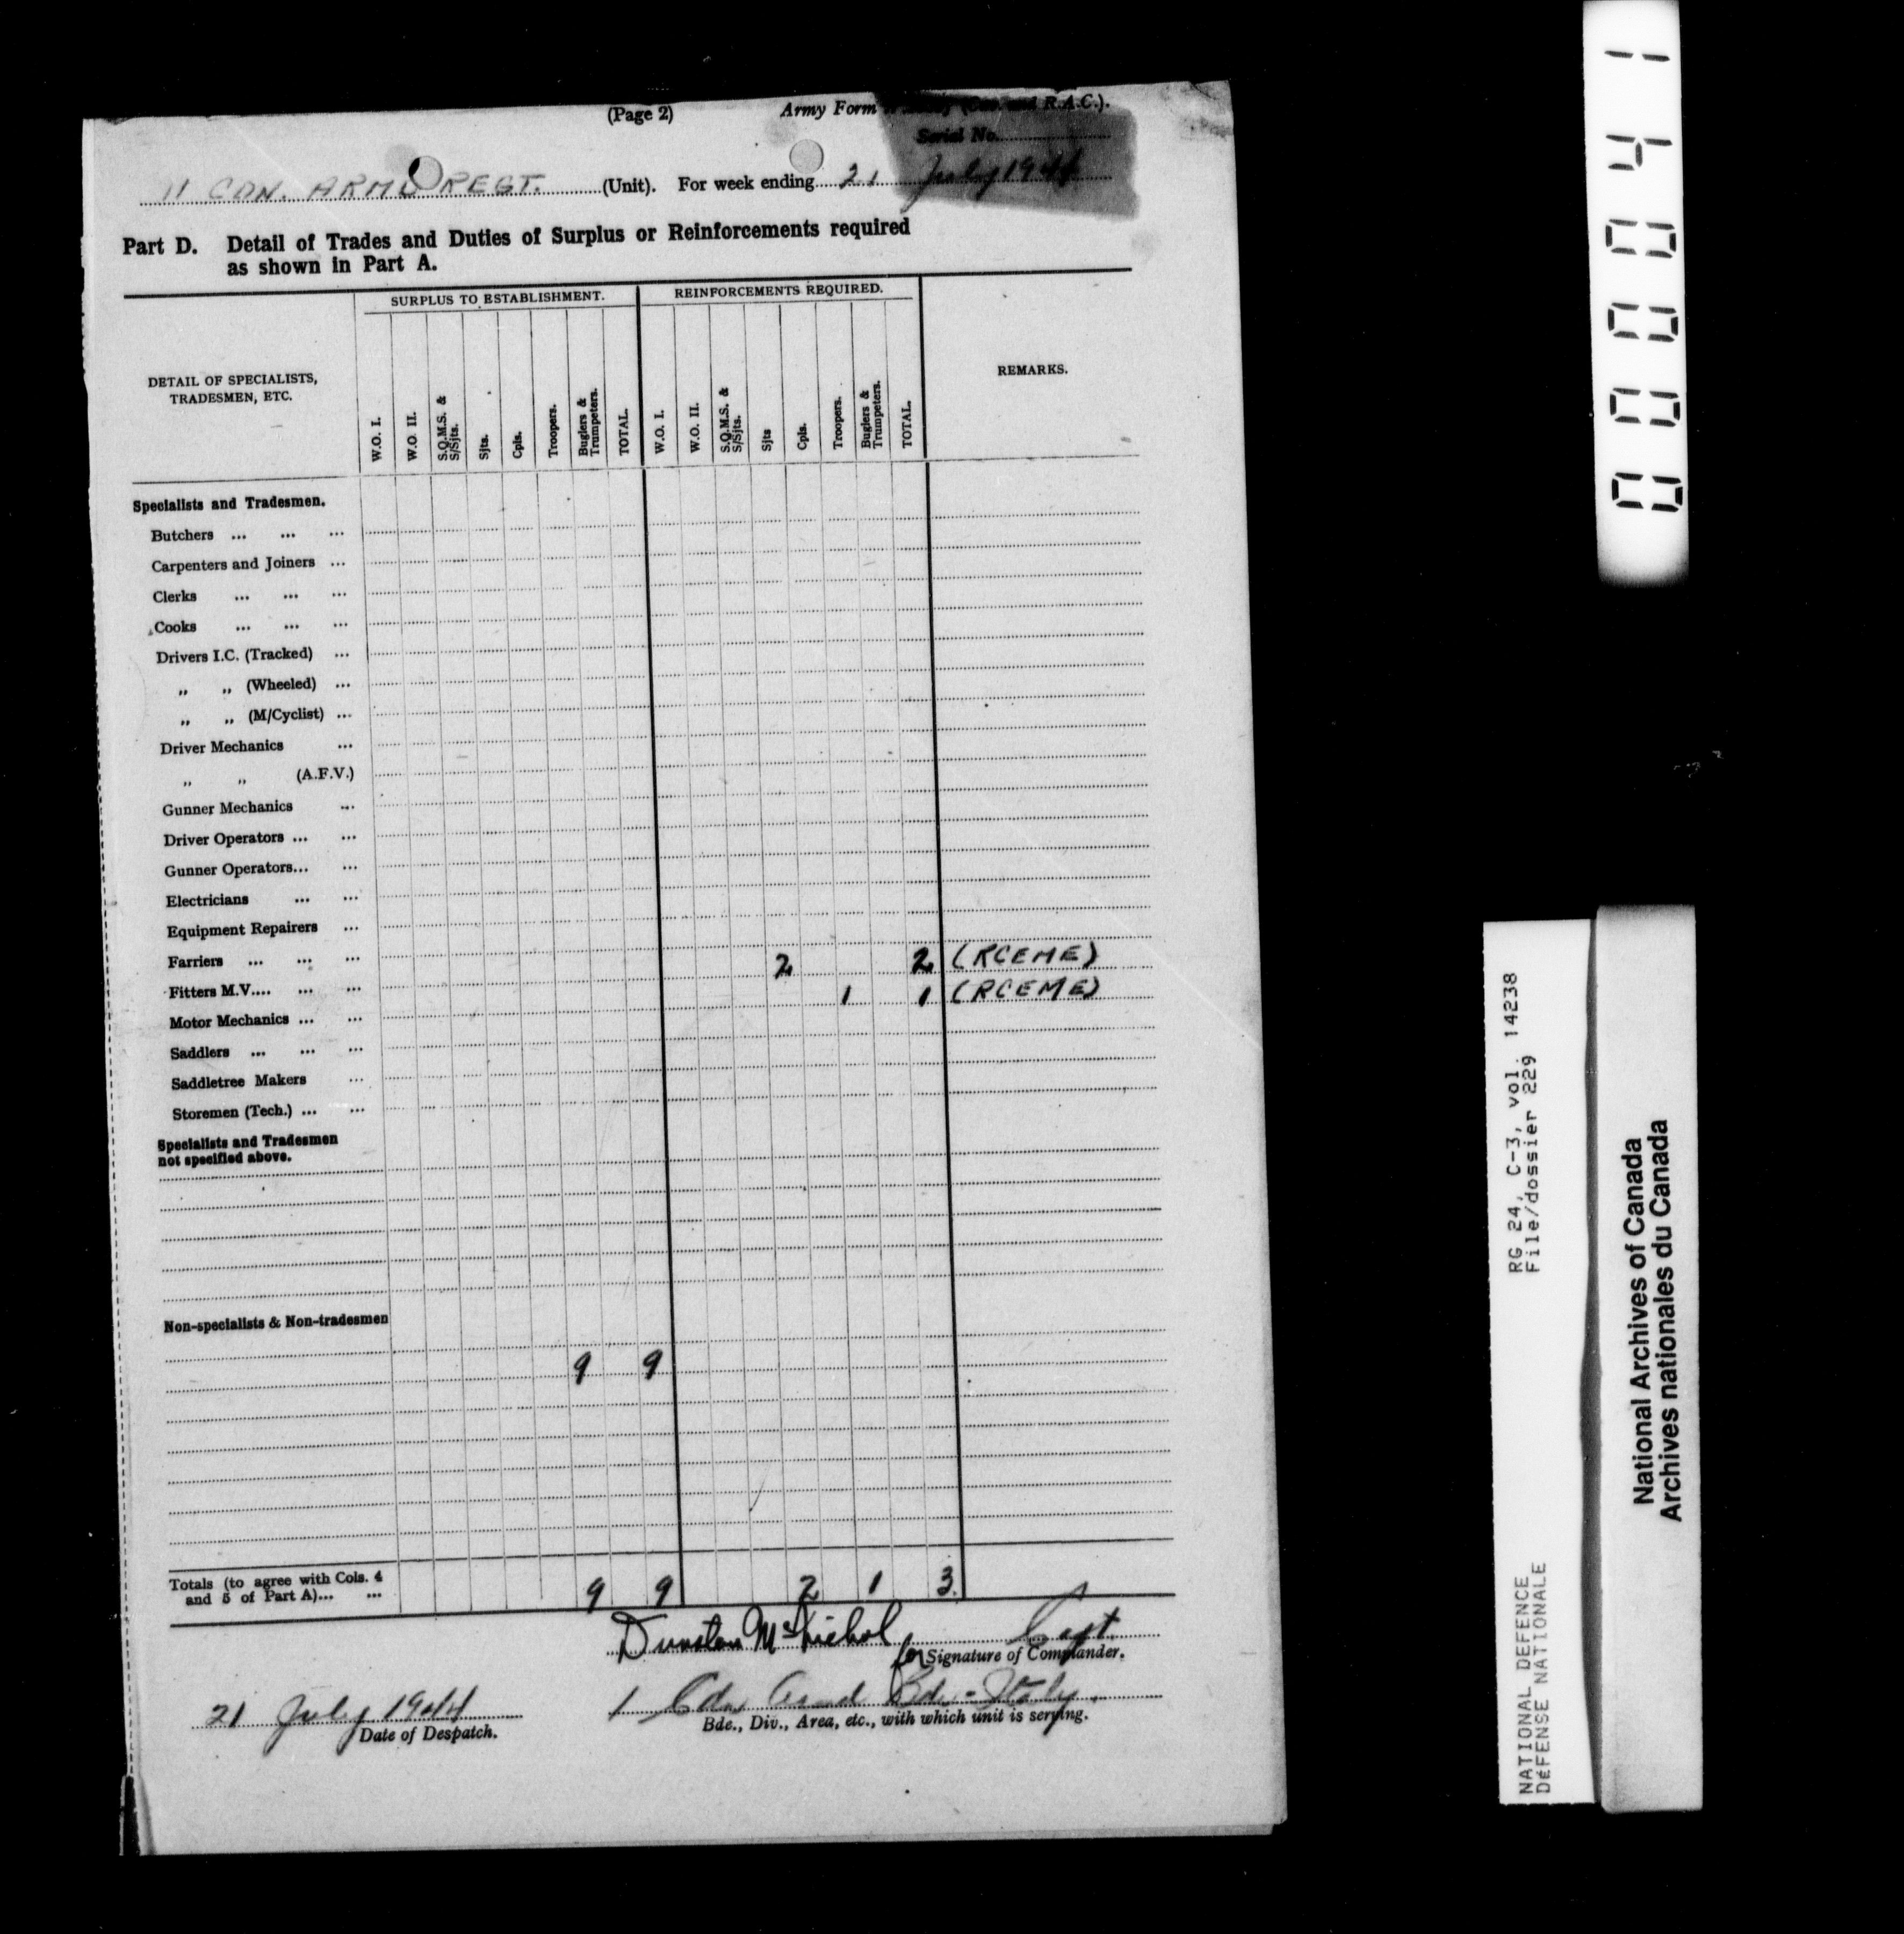 (Page 2) Army Form (Cav. and R.A.C.).
Serial No.
11 CDN. ARMD REGT. (Unit). For week ending 21 July 1944
Part D. Detail of Trades and Duties of Surplus or Reinforcements required
as shown in Part A.
SURPLUS TO ESTABLISHMENT. REINFORCEMENTS REQUIRED.
DETAIL OF SPECIALISTS,
TRADESMEN, ETC.
W.O. I.
W.O. II.
S.Q.M.S. &
S/Sjts.
Sjts.
Cpls.
Troopers.
Buglers &
Trumpeters.
TOTAL.
W.O. I.
W.O. II.
S.Q.M.S. &
S/Sjts.
Sjts
Cpls.
Troopers.
Buglers &
Trumpeters.
TOTAL.
REMARKS.
Specialists and Tradesmen.
Butchers ... ... ...
Carpenters and Joiners ...
Clerks ... ... ...
Cooks ... ... ...
Drivers I.C. (Tracked) ...
„ „ (Wheeled) ...
„ „ (M/Cyclist) ...
Driver Mechanics ...
„ „ (A.F.V.)
Gunner Mechanics ...
Driver Operators ... ...
Gunner Operators... ...
Electricians ... ...
Equipment Repairers ...
Farriers ... ... ... 2 2 (RCEME)
Fitters M.V.... ... ... 1 1 (RCEME)
Motor Mechanics ... ...
Saddlers ... ... ...
Saddletree Makers ...
Storemen (Tech.) ... ...
Specialists and Tradesmen
not specified above.
Non-specialists & Non-tradesmen
9 9
Totals (to agree with Cols. 4
and 5 of Part A)... ... 9 9 2 1 3
Dunstan McNichol Capt.
for Signature of Commander.
21 July 1944 1 Cdn Armd Bde - Italy.
Date of Despatch. Bde., Div., Area, etc., with which unit is serving.
000041
RG 24, C-3, vol. 14238
File/dossier 229
NATIONAL DEFENCE
DÉFENSE NATIONALE
National Archives of Canada
Archives nationales du Canada